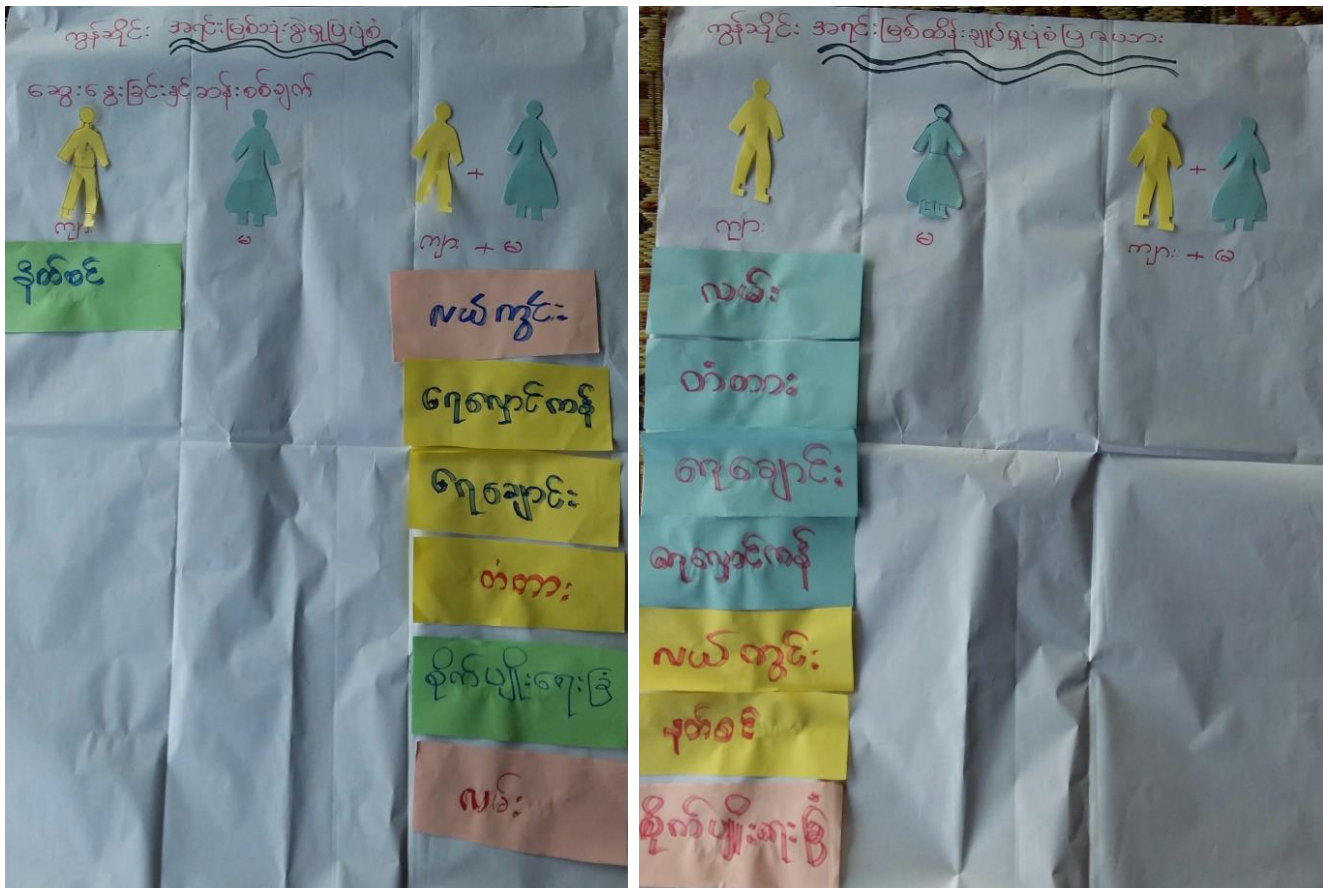 ကွန်ဆိုင်း အရင်းမြစ်သုံးစွဲမှုပြပုံစံ
ဆွေးနွေးခြင်းနှင့်ဆန်းစစ်ချက်
+
ကျား
မ
ကျား + မ
နတ်စင်
လယ်ကွင်း
ရေလှောင်ကန်
ရေချောင်း
တံတား
စိုက်ပျိုးရေးခြံ
လမ်း
ကွန်ဆိုင်း အရင်းမြစ်ထိန်းချုပ်မှုပုံစံပြဇယား
+
ကျား
မ
ကျား + မ
လမ်း
တံတား
ရေချောင်း
ရေလှောင်ကန်
လယ်ကွင်း
နတ်စင်
စိုက်ပျိုးရေးခြံ